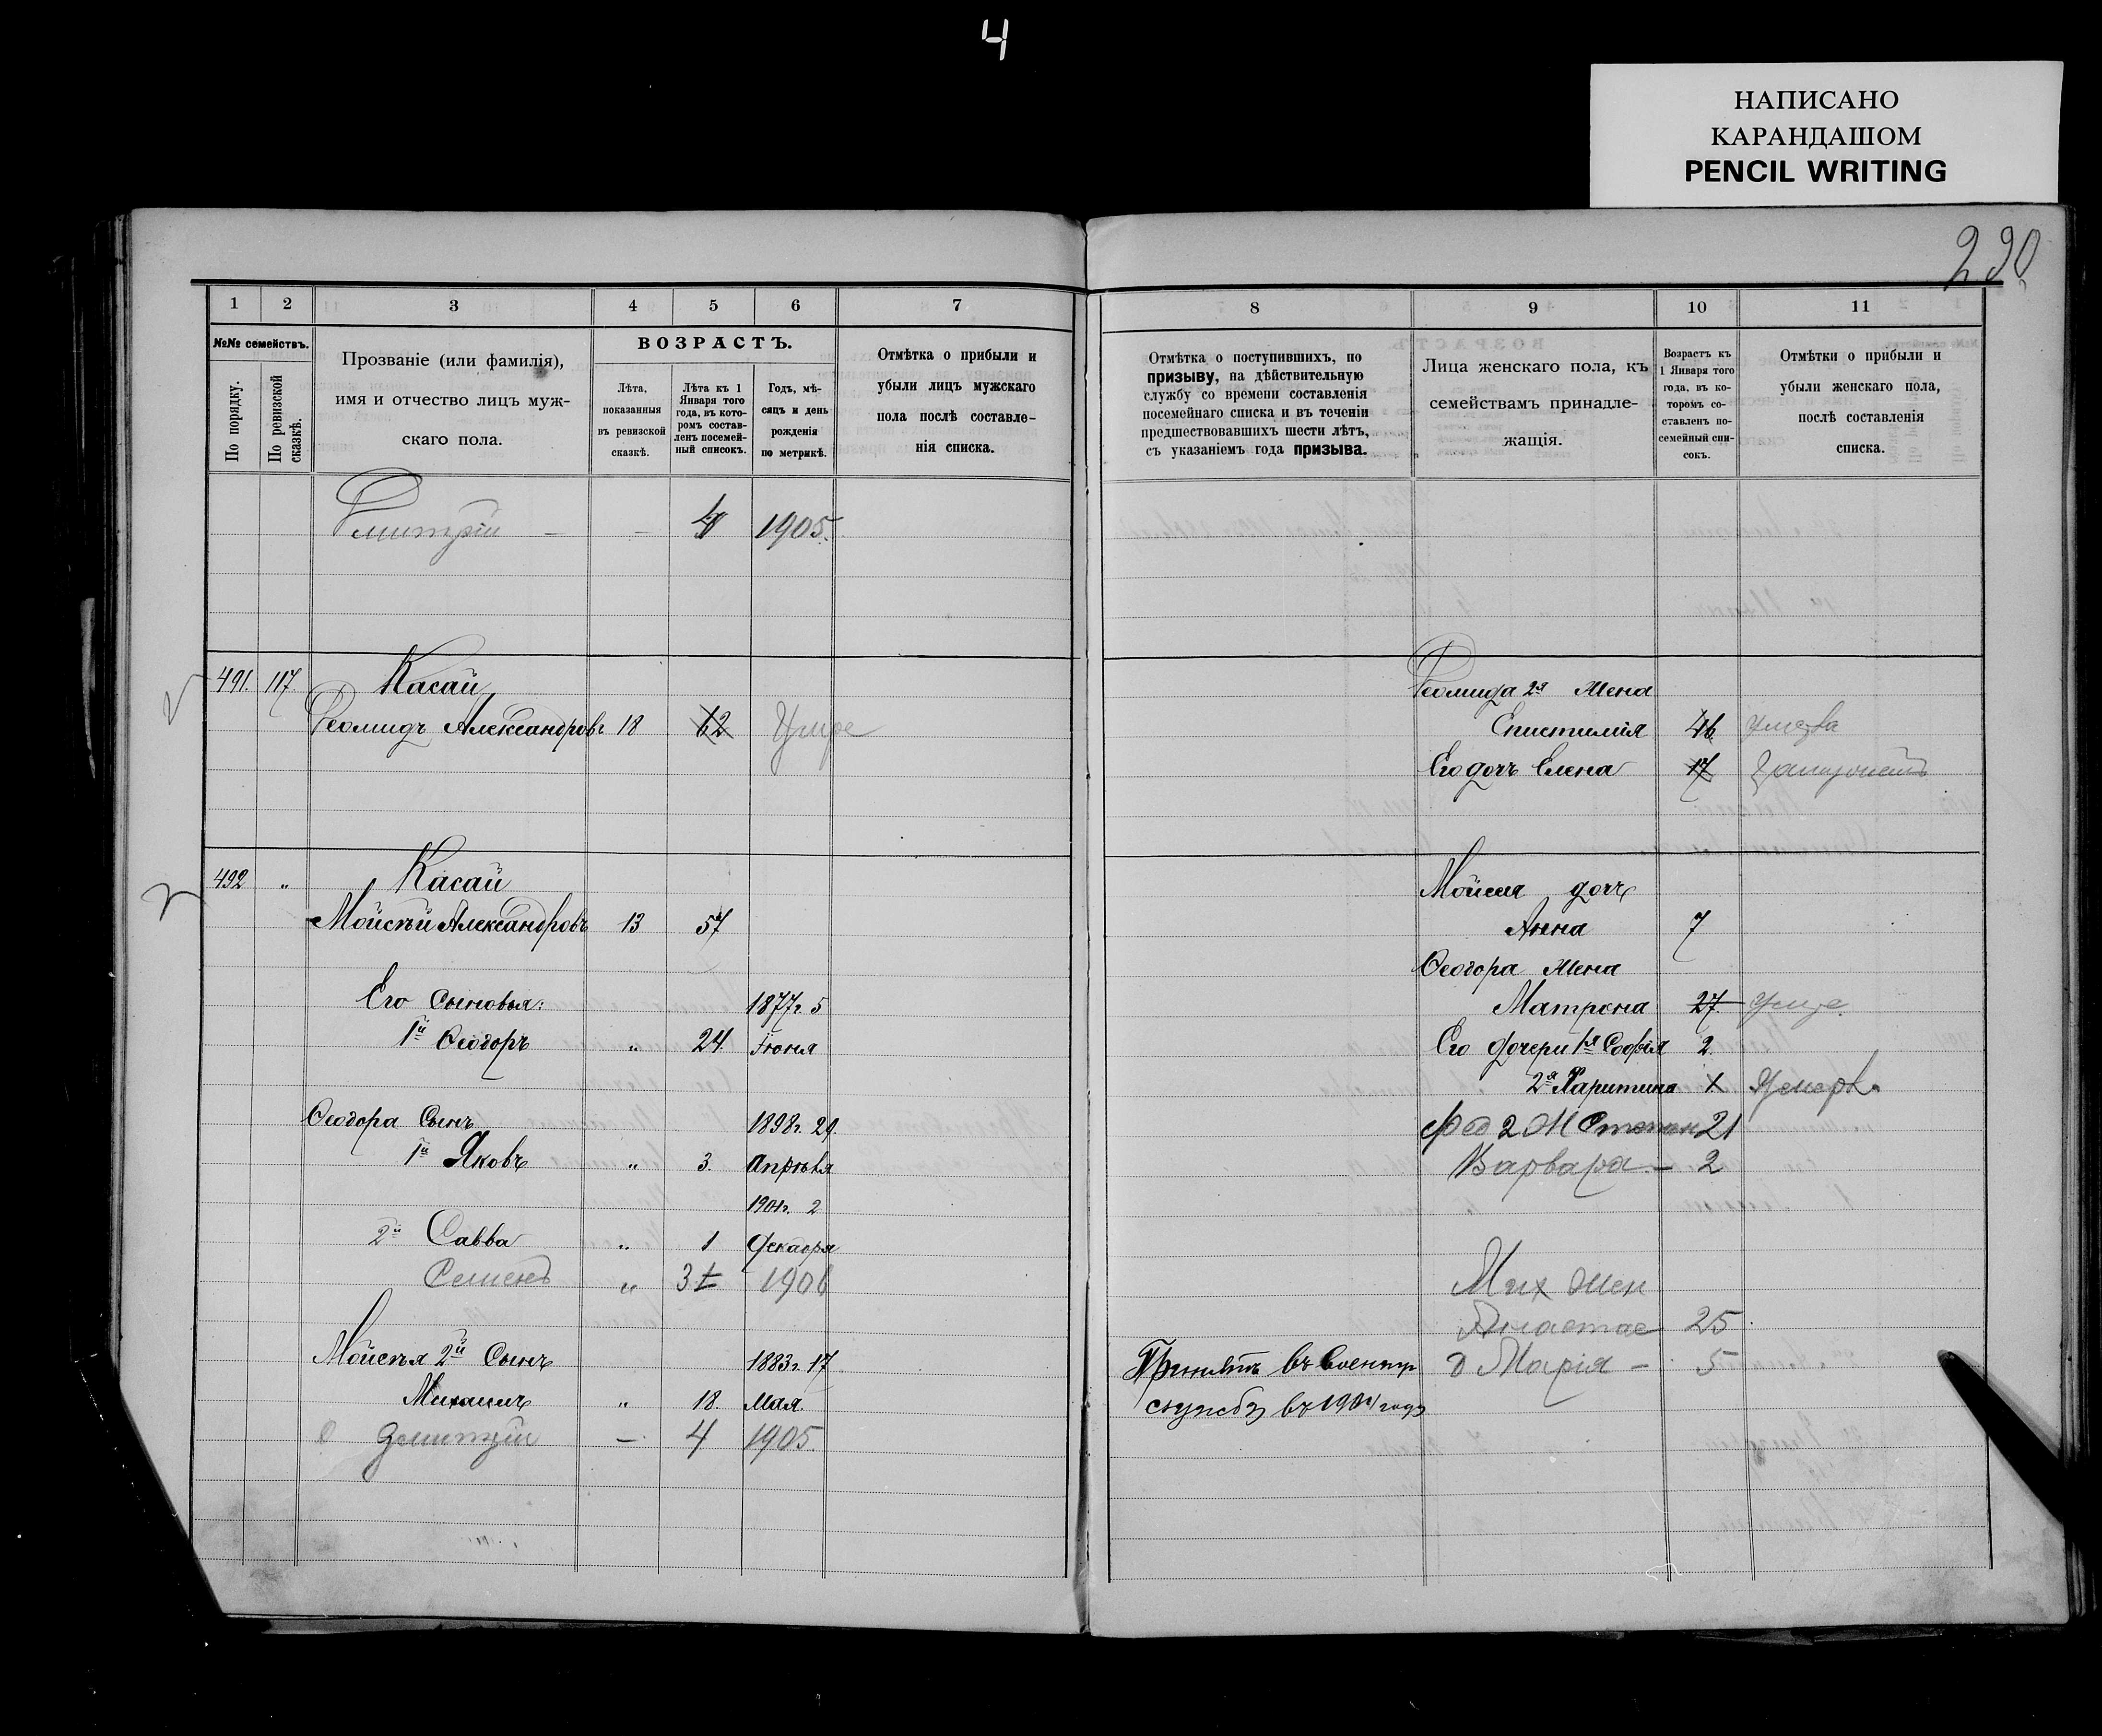 4
НАПИСАНО
КАРАНДАШОМ
PENCIL WRITING
230
1 2 3 4 5 6 7
№№ семействъ.
По порядку.
По ревизской сказкѣ.
Прозваніе (или фамилія),
имя и отчество лицъ муж-
скаго пола.
ВОЗРАСТЪ.
Лѣта,
показанныя
въ ревизской
сказкѣ.
Лѣта къ 1
Января того
года, въ кото-
ромъ состав-
ленъ посемей-
ный список.
Годъ, мѣ-
сяцъ и день
рожденія
по метрикѣ.
Отмѣтка о прибыли и
убыли лицъ мужскаго
пола послѣ составле-
нія списка.
Дмитрій — — 4 1905.
491. 117 Касай
Леомидъ Александровъ 18 62 Умре
492 „ Касай
Мойсѣй Александровъ 13 57
Его сыновья: 1877г. 5
1й Ѳеодоръ „ 24. Іюня
Ѳеодора Сынъ 1898г. 29.
1й Яковъ „ 3. Апрѣля
1901г. 2
2й Савва „ 1 Декабря
Семенъ „ 3 1906
Мойсѣя 2й Сынъ 1883г. 17
Михаилъ „ 18. Мая
Дмитрій — 4 1905.
8 9 10 11
Отмѣтка о поступившихъ, по
призыву, на дѣйствительную
службу со времени составленія
посемейнаго списка и въ теченіи
предшествовавшихъ шести лѣтъ,
съ указаніемъ года призыва.
Лица женскаго пола, къ
семействамъ принадле-
жащія.
Возрастъ къ
1 Января того
года, въ ко-
торомъ со-
ставленъ по-
семейный спи-
сокъ.
Отмѣтки о прибыли и
убыли женскаго пола,
послѣ составленія
списка.
2я жена
Епистимія 46
Его дочь Елена 17
Мойсея дочь
Анна 7
Ѳеодора жена
Матрона 27.
Его дочери 1я Софія 2.
2я Харитина
Фед 2 Ж 21
Варвара — 2
Мих жен
Анастас 25
Принятъ въ военную д Марія — 5
службу въ 1904 году